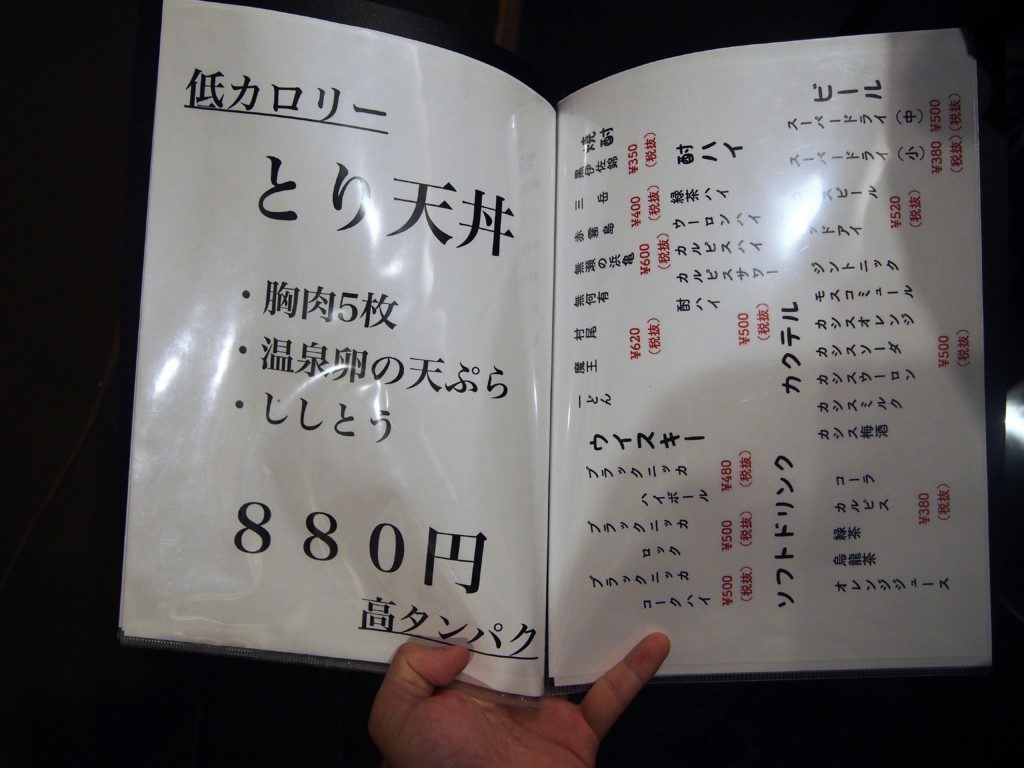 低カロリー
とり天丼
・胸肉5枚
・温泉卵の天ぷら
・ししとう
８８０円
高タンパク
ビール
スーパードライ（中） ¥500（税抜）
スーパードライ（小） ¥380（税抜）
ズビール
ッドアイ
¥520（税抜）
カクテル
ジントニック
モスコミュール
カシスオレンジ
カシスソーダ
カシスウーロン
カシスミルク
カシス梅酒
¥500（税抜）
ソフトドリンク
コーラ
カルピス
緑茶
烏龍茶
オレンジジュース
¥380（税抜）
酎ハイ
緑茶ハイ
ウーロンハイ
カルピスハイ
カルピスサワー
酎ハイ
¥500（税抜）
焼酎
黒伊佐錦 ¥350（税抜）
三岳 ¥400（税抜）
赤霧島
無瀬の浜亀 ¥600（税抜）
無何有
村尾 ¥620（税抜）
魔王
一どん
ウイスキー
ブラックニッカ
ハイボール ¥480（税抜）
ブラックニッカ
ロック ¥500（税抜）
ブラックニッカ
コークハイ ¥500（税抜）